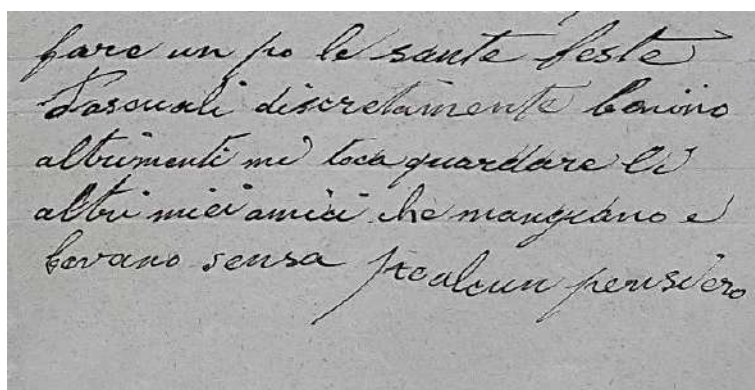 fare un po le sante feste
Pascuali discretamente bonino
altrimenti mi toca guardare li
altri miei amici che mangiano e
bevano sensa alcun pensiero